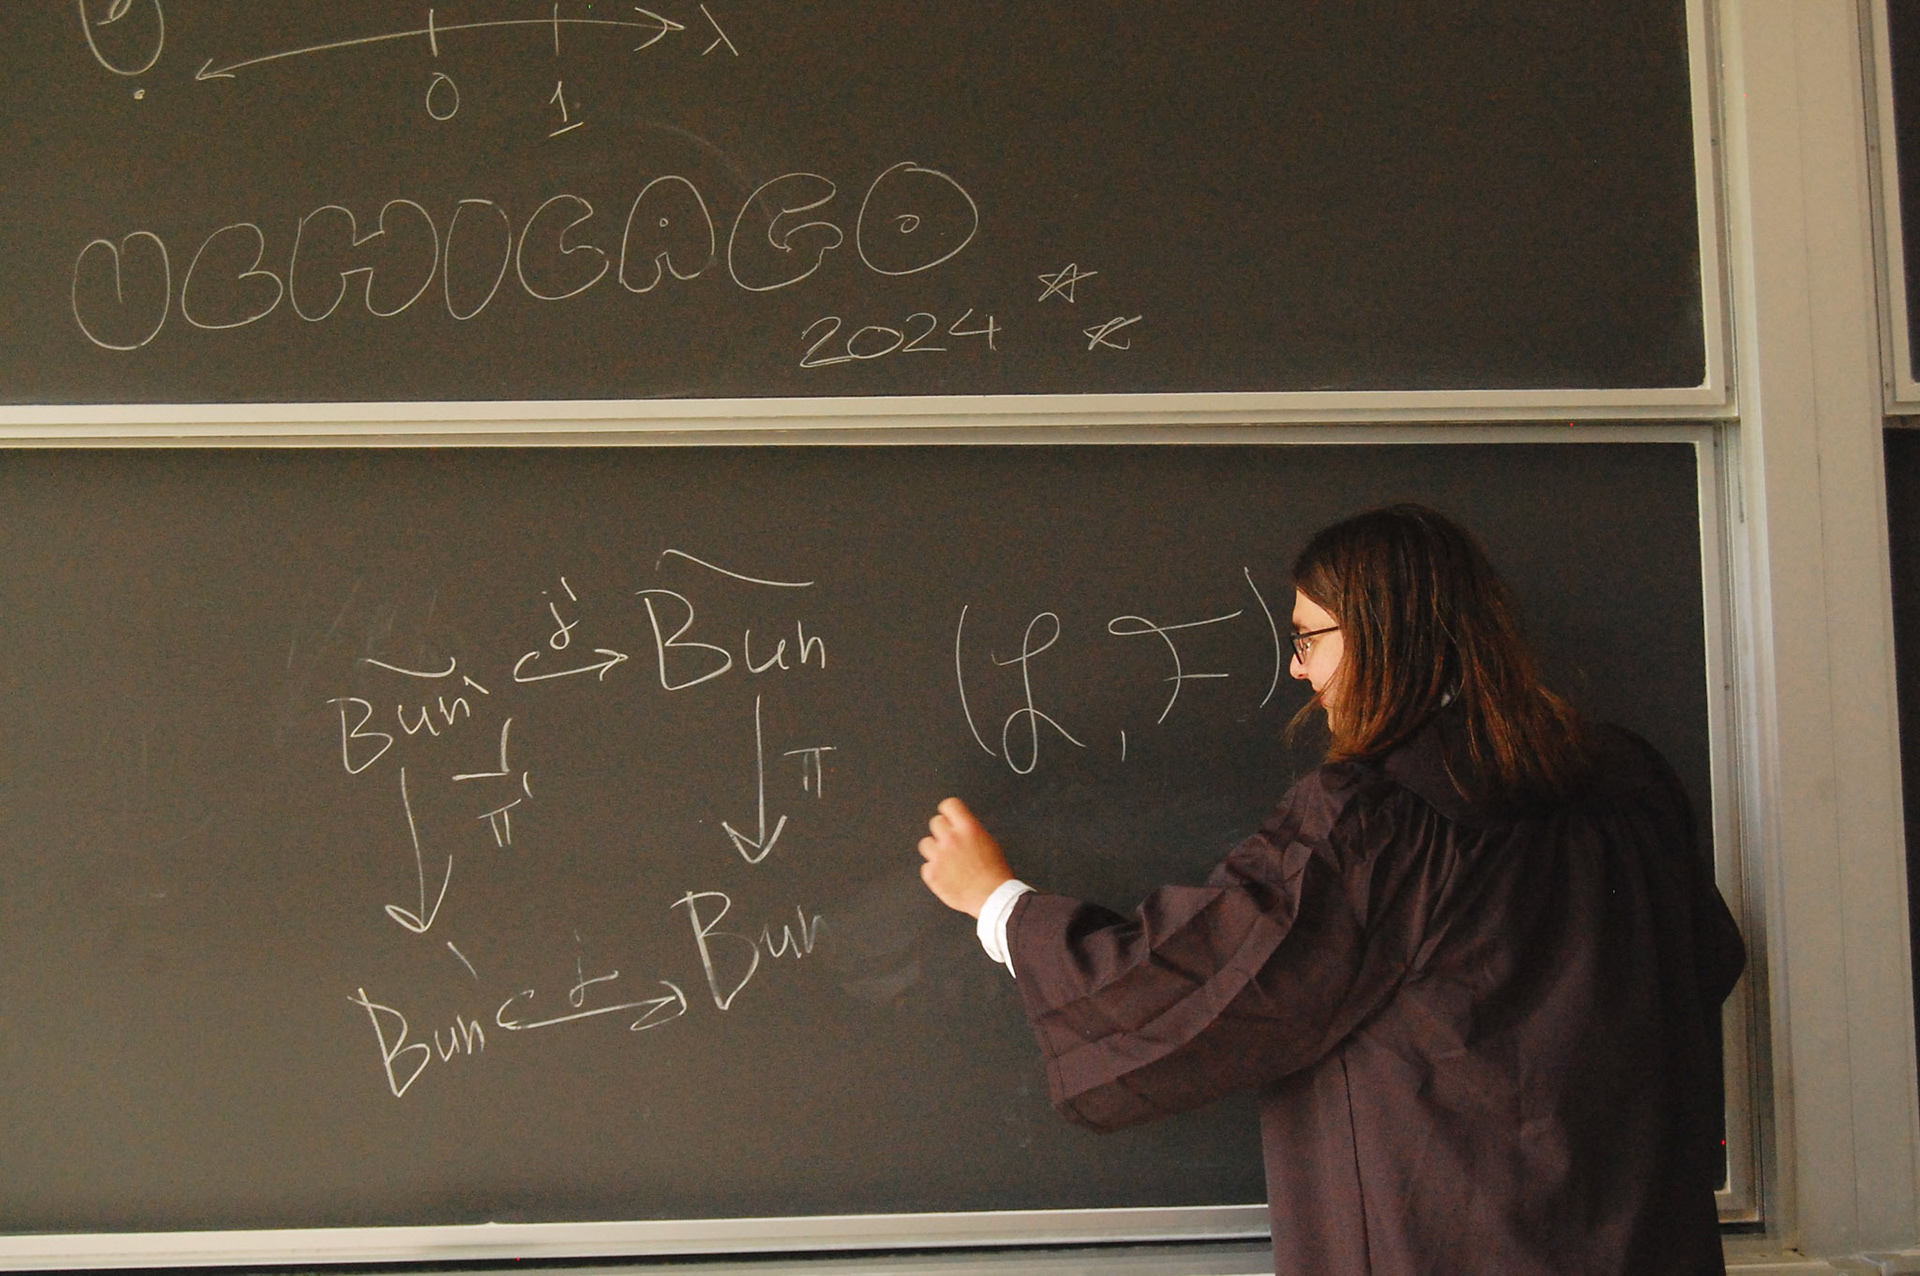 λ
0 1
UCHICAGO
2024
Bun' j' Bun (ℒ, ℱ)
π' π
Bun' j Bun